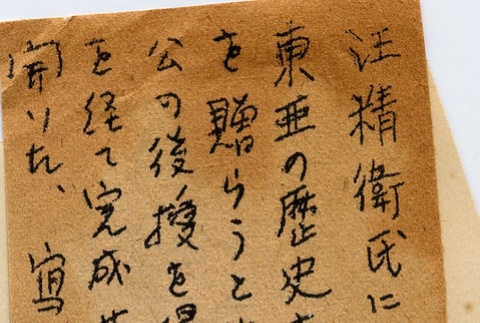 汪精衛氏に
東亜の歴史
を贈らうと
公の後援を
を経て完成
開いた、写